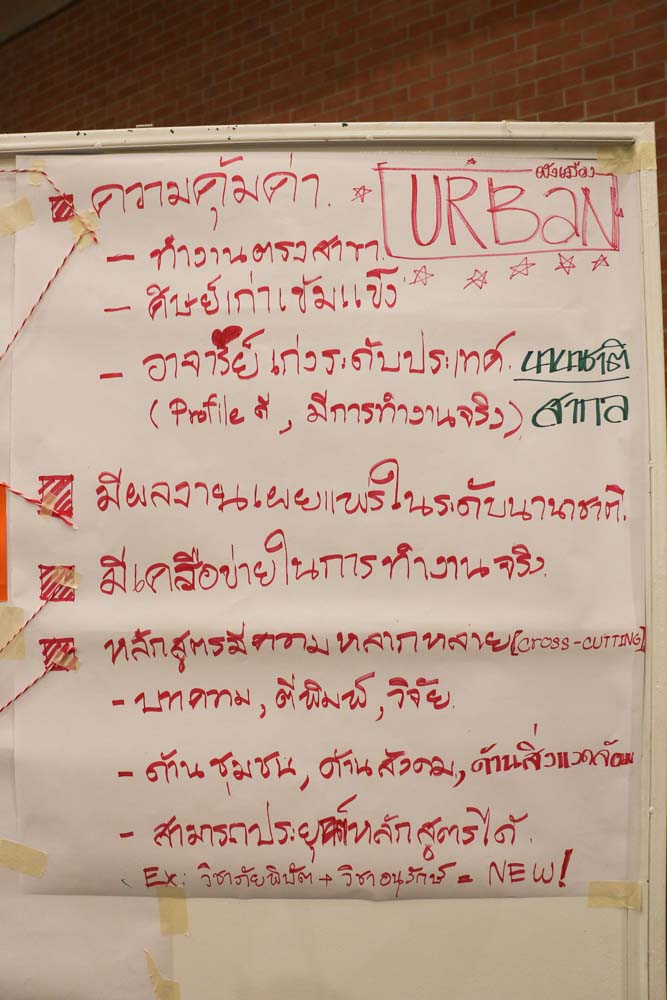 ผังเมือง
ความคุ้มค่า. URBAN
- ทำงานตรงสาขา.
- ศิษย์เก่าเข้มแข็ง
- อาจารย์เก่งระดับประเทศ. นานาชาติ
(Profile ดี, มีการทำงานจริง) สากล
มีผลงานเผยแพร่ในระดับนานาชาติ.
มีเครือข่ายในการทำงานจริง.
หลักสูตรมีความหลากหลาย [CROSS-CUTTING]
- บทความ, ตีพิมพ์, วิจัย.
- ด้านชุมชน, ด้านสังคม, ด้านสิ่งแวดล้อม
- สามารถประยุกต์หลักสูตรได้.
Ex: วิชาภัยพิบัติ + วิชาอนุรักษ์ = NEW!